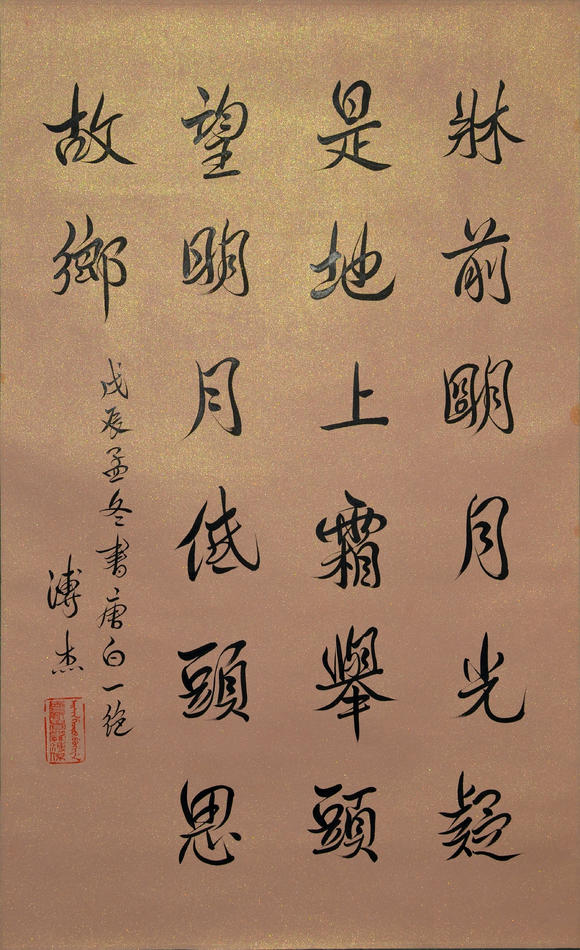 牀前朙月光疑
是地上霜舉頭
望明月低頭思
故鄉
戊辰孟冬書唐白一絶
溥杰